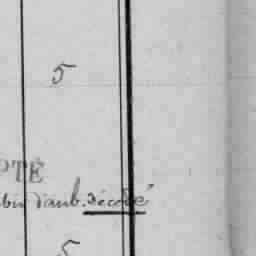 5
PTÉ
d'aub. décédé
5